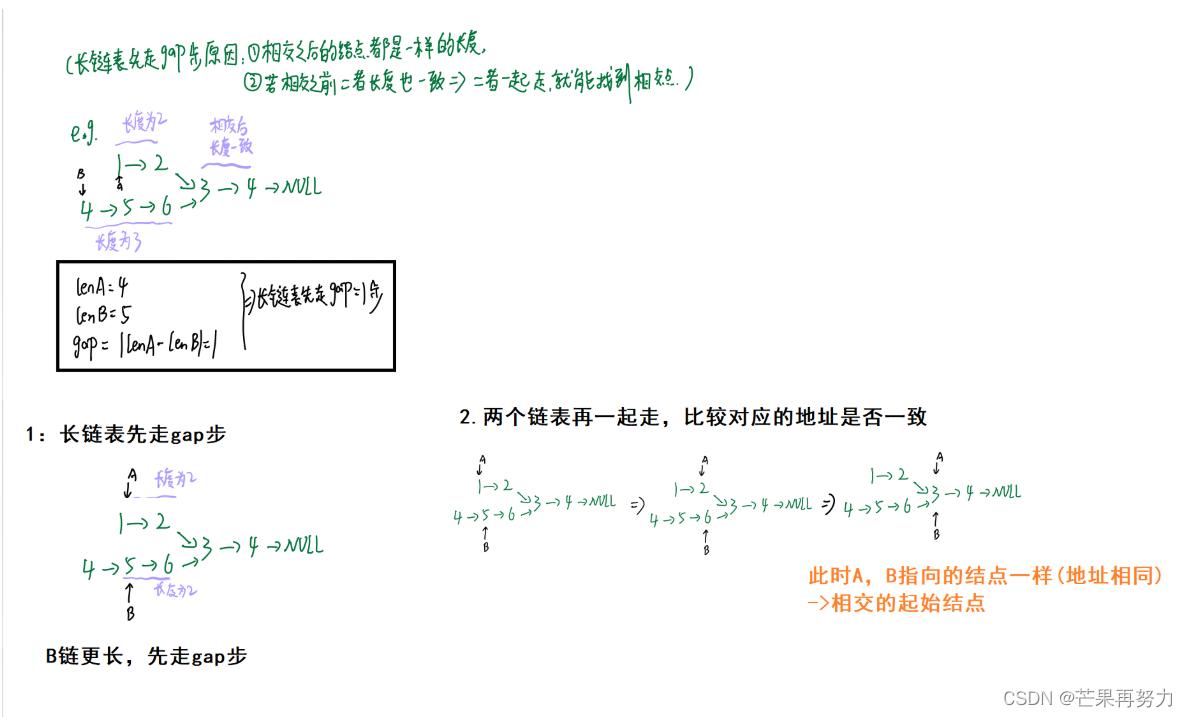 (长链表先走gap步原因:①相交之后的结点都是一样的长度,
②若相交之前二者长度也一致=>二者一起走,就能找到相交点.)
e.g.
长度为2
相交后
长度一致
B
1→2
A
3→4→NULL
4→5→6
长度为3
lenA=4
lenB=5
gap=|lenA-lenB|=1
=>长链表先走gap=1步
1：长链表先走gap步
A
长度为2
1→2
3→4→NULL
4→5→6
长度为2
B
B链更长，先走gap步
2.两个链表再一起走，比较对应的地址是否一致
A
1→2
3→4→NULL
4→5→6
B
=>
A
1→2
3→4→NULL
4→5→6
B
=>
A
1→2
3→4→NULL
4→5→6
B
此时A，B指向的结点一样(地址相同)
->相交的起始结点
CSDN @芒果再努力